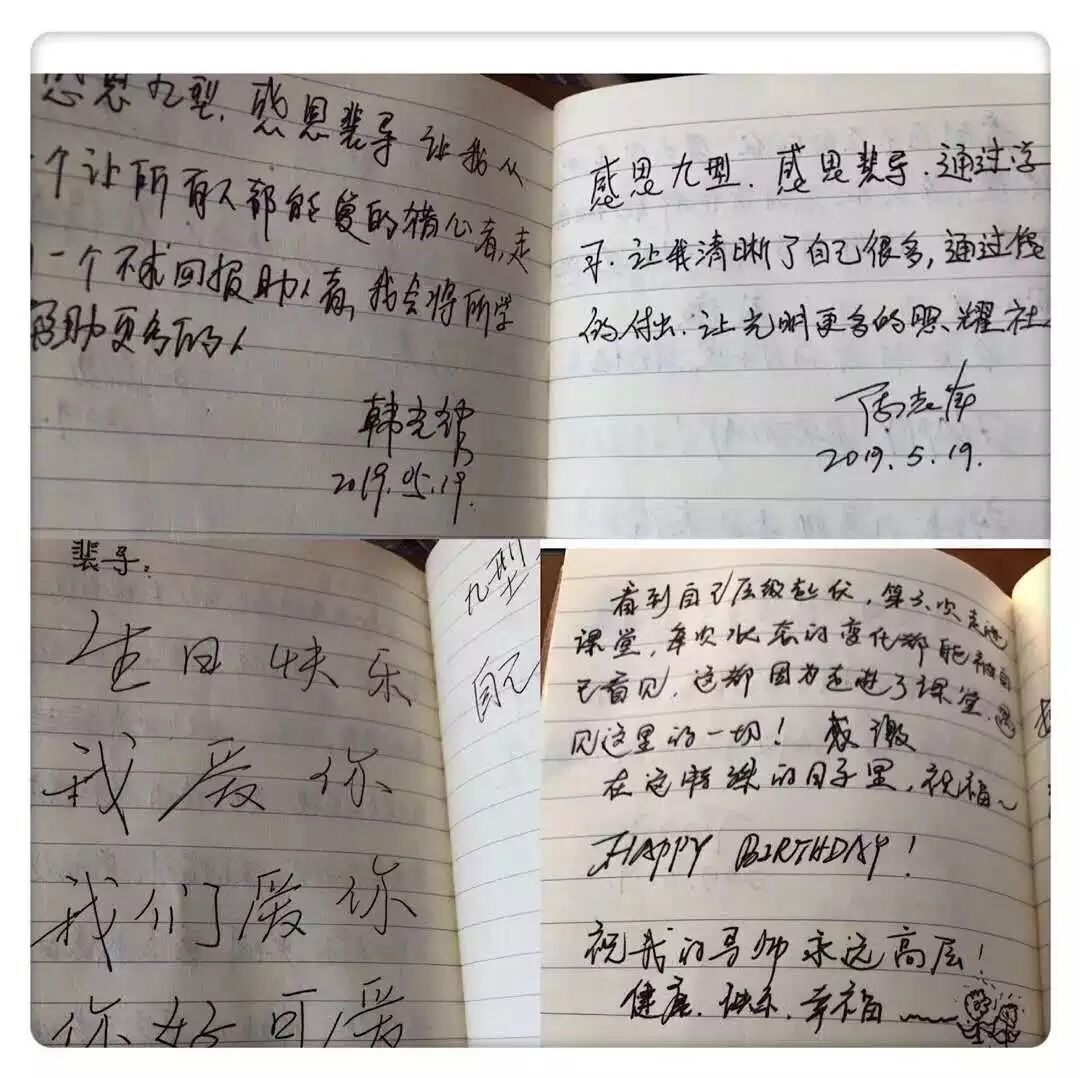 感恩九型，感恩裴导 让我从
一个让所有人都能爱的精心者，走
一个不求回报助人者，我会将所学
帮助更多的的人
韩光
2019.05.19.
感恩九型．感恩裴导．通过学
习．让我清晰了自己很多，通过
的付出．让光明更多的照耀社
2019.5.19.
裴导：
生日快乐
我爱你
我们爱你
你好可爱
九型
自己
看到自己层级起伏，第六次走进
课堂，每次状态的变化都能被自
己看见，这都因为走进了课堂，遇
见这里的一切！感激
在这特殊的日子里，祝福~
HAPPY BIRTHDAY！
祝我的导师永远高层！
健康．快乐．幸福